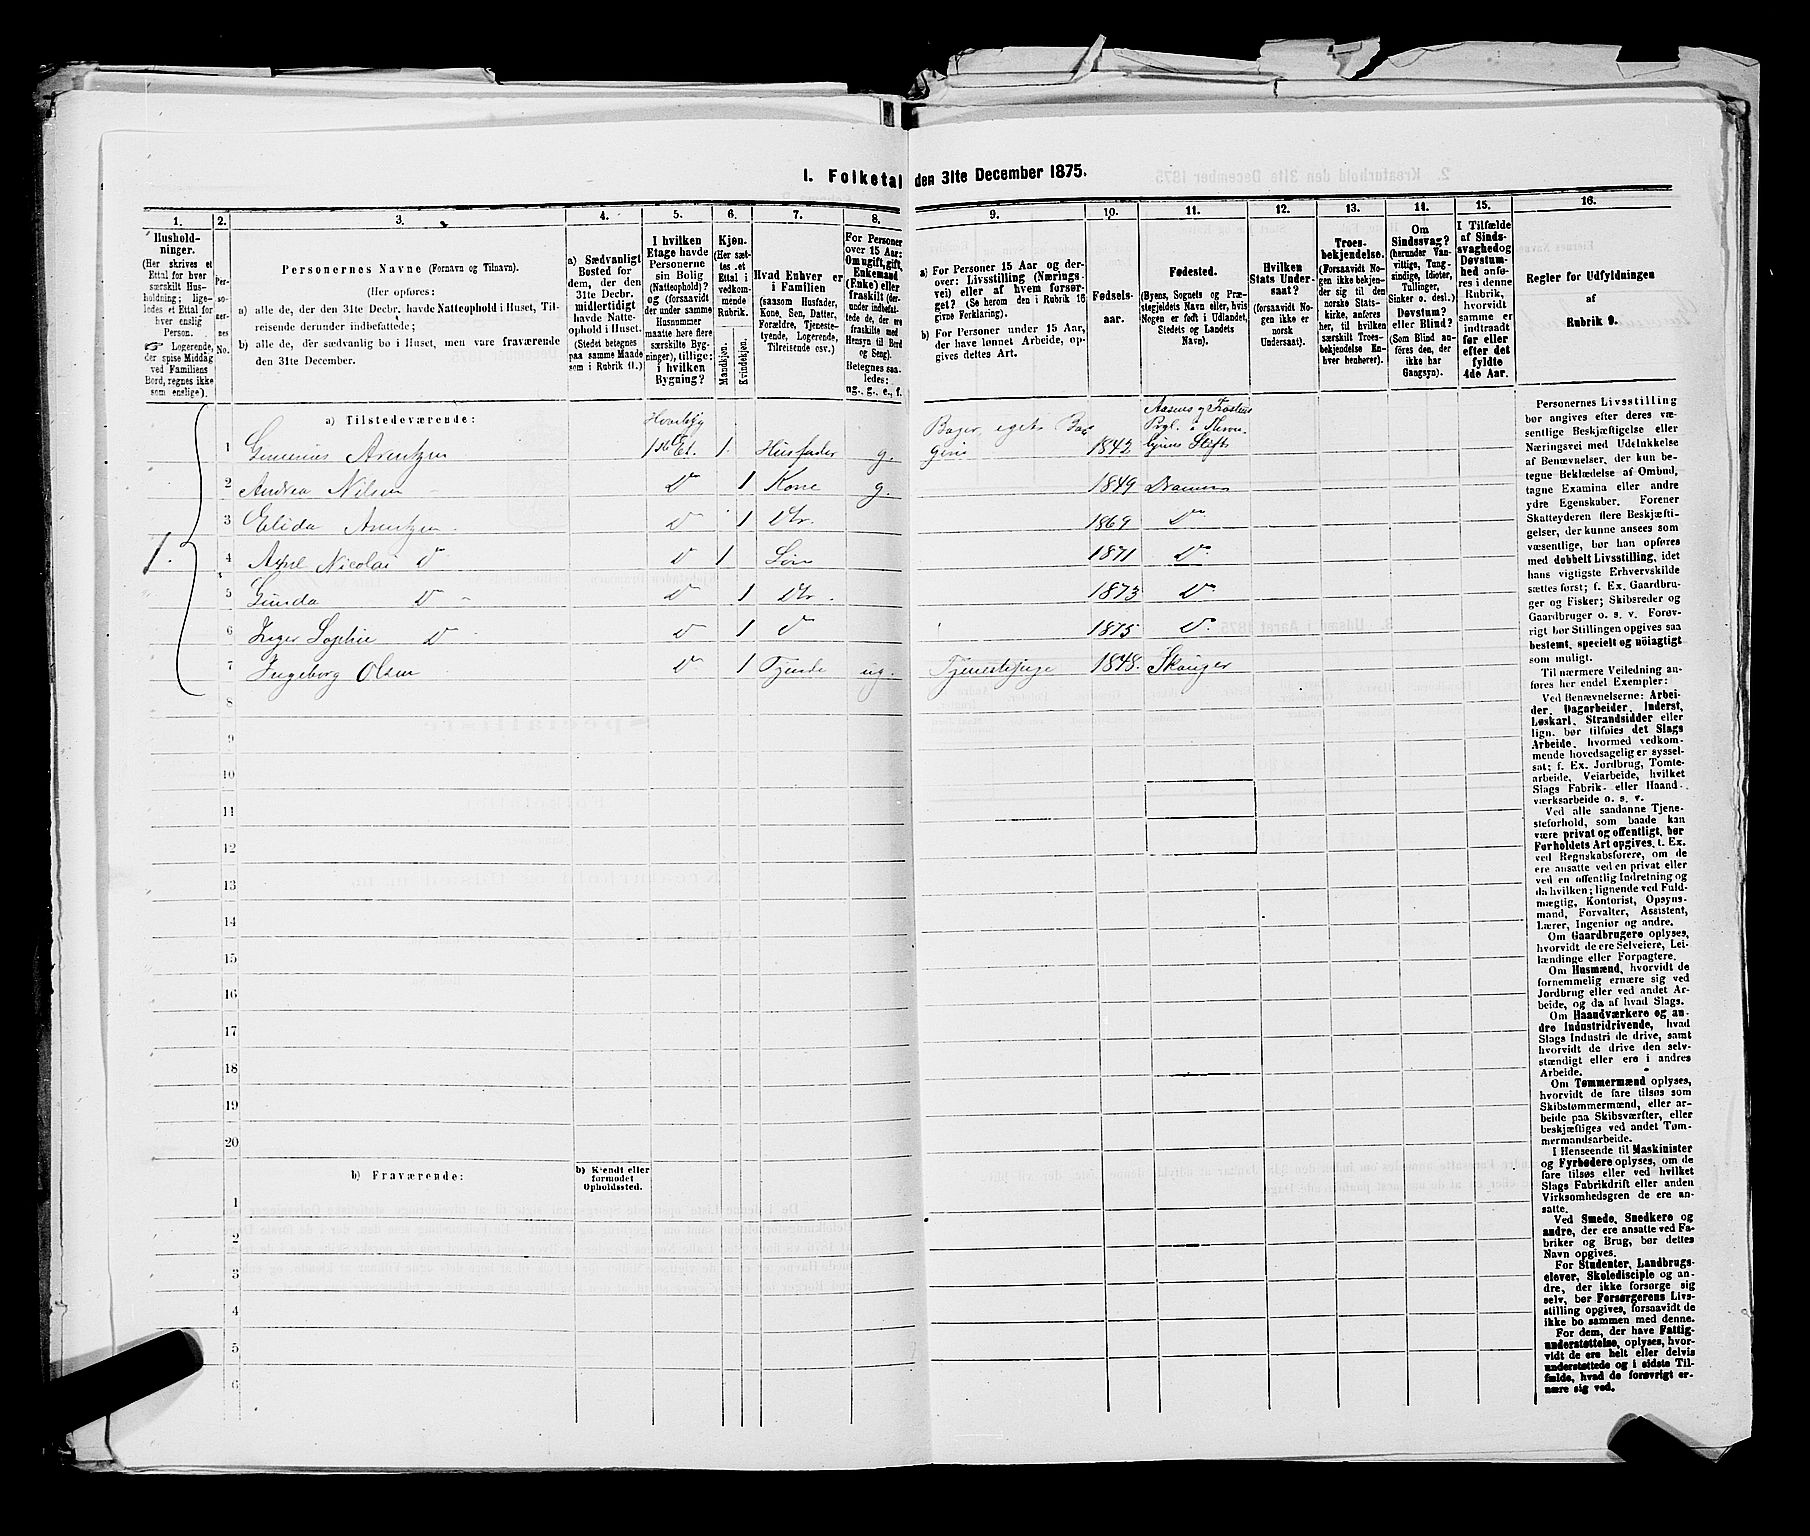 1. Folketal den 31te December 1875.
1.
Husholdninger.
(Her skrives et
Ettal for hver
særskilt Husholdning;
ligeledes et Ettal for
hver enslig
Person.
Logerende,
der spise Middag
ved Familiens
Bord, regnes ikke
som enslige).
2.
Personernes No.
3.
Personernes Navne (Fornavn og Tilnavn).
(Her opføres:
a) alle de, der den 31te Decbr. havde Natteophold i Huset, Tilreisende derunder indbefattede;
b) alle de, der sædvanlig bo i Huset, men vare fraværende
den 31te December.
4.
a) Sædvanligt
Bosted for
dem, der den
31te Decbr.
midlertidigt
havde Natteophold i Huset.
(Stedet betegnes
paa samme Maade
som i Rubrik 11.)
5.
I hvilken
Etage havde
Personerne
sin Bolig
(Natteophold)?
og (forsaavidt
der under samme
Husnummer
maatte høre flere
særskilte Bygninger), tillige:
i hvilken
Bygning?
6.
Kjøn.
(Her sættes et
Ettal i
vedkommende
Rubrik.
Mandkjøn.
Kvindekjøn.
7.
Hvad Enhver er
i Familien
(saasom Husfader,
Kone, Søn, Datter,
Forældre, Tjenestetyende, Logerende,
Tilreisende osv.)
8.
For Personer
over 15 Aar:
Om ugift, gift,
Enkemand
(Enke) eller
fraskilt (derunder indbefattede de, der ere
fraskilte med
Hensyn til Bord
og Seng).
Betegnes saaledes:
ug., g., e., f.
9.
a) For Personer 15 Aar og derover: Livsstilling (Næringsvei) eller af hvem forsørget? (Se herom den i Rubrik 16
givne Forklaring).
b) For Personer under 15 Aar,
der have lønnet Arbeide, opgives dettes Art.
10.
Fødselsaar.
11.
Fødested.
(Byens, Sognets og Præstegjeldets Navn eller, hvis
Nogen er født i Udlandet,
Stedets og Landets
Navn).
12.
Hvilken
Stats Undersaat?
(forsaavidt Nogen ikke er
norsk
Undersaat).
13.
Troesbekjendelse.
(Forsaavidt Nogen ikke bekjender sig til den
norske Statskirke, anføres
her, til hvilken
særskilt Troesbekjendelse Enhver henhører).
14.
Om
Sindssvag?
(herunder Vanvittige, Tungsindige, Idioter,
Tullinger,
Sinker o. desl.)
Døvstum?
eller Blind?
(Som Blind anføres den, der
ikke har
Gangsyn).
15.
I Tilfælde
af Sindssvaghed og
Døvstumhed anføres i denne
Rubrik,
hvorvidt
samme er
indtraadt
før eller
efter det
fyldte
4de Aar.
16.
Regler for Udfyldningen
af
Rubrik 9.
a) Tilstedeværende:
1. 1 Arentzen 1ste Et. 1. Husfader g. Bager, eget Bageri 1842 Stift
2 Andrea Nilsen Do 1 Kone g. 1849 Drammen
3 Elida Arentzen Do 1 Dtr. 1869 Do
4 Axel Nicolai Do Do 1 Søn 1871 Do
5 Gunda Do Do 1 Dtr. 1873 Do
6 Inger Sophie Do Do 1 Do 1875 Do
7 Ingeborg Olsen Do 1 Tjende ug. Tjenestepige 1848. Skouger
8
9
10
11
12
13
14
15
16
17
18
19
20
b) Fraværende:
b) Kjendt eller
formodet
Opholdssted.
1
2
3
4
5
6
Personernes Livsstilling
bør angives efter deres væsentlige Beskjæftigelse eller
Næringsvei med Udelukkelse
af Benævnelser, der kun betegne Beklædelse af Ombud,
tagne Examina eller andre
ydre Egenskaber. Forener
Skatteyderen flere Beskjæftigelser, der kunne ansees som
væsentlige, bør han opføres
med dobbelt Livsstilling, idet
hans vigtigste Erhvervskilde
sættes først; f. Ex. Gaardbruger og Fisker; Skibsreder og
Gaardbruger o. s. v. Forøvrigt bør Stillingen opgives saa
bestemt, specielt og nöiagtigt
som muligt.
Til nærmere Veiledning anføres her endel Exempler:
Ved Benævnelserne: Arbeider, Dagarbeider, Inderst,
Løskarl, Strandsidder eller
lign. bør tilføies det Slags
Arbeide, hvormed vedkommende hovedsagelig er sysselsat; f. Ex. Jordbrug, Tomtearbeide, Veiarbeide, hvilket
Slags Fabrik- eller Haandværksarbeide o. s. v.
Ved alle saadanne Tjenesteforhold, som baade kan
være privat og offentligt, bør
Forholdets Art opgives, t. Ex.
ved Regnskabsførere, om de
ere ansatte ved en privat eller
ved en offentlig Indretning og
da hvilken; lignende ved Fuldmægtig, Kontorist, Opsynsmand, Forvalter, Assistent,
Lærer, Ingeniør og andre.
Om Gaardbrugere oplyses,
hvorvidt de ere Selveiere, Leilændinge eller Forpagtere.
Om Husmænd, hvorvidt de
fornemmelig ernære sig ved
Jordbrug eller ved andet Arbeide, og da af hvad Slags.
Om Haandværkere og andre Industridrivende, hvad
Slags Industri de drive, samt
hvorvidt de drive den selvstændigt eller ere i andres
Arbeide.
Om Tømmermænd oplyses,
hvorvidt de fare tilsøs som
Skibstømmermænd, eller arbeide paa Skibsværfter, eller
beskjæftiges ved andet Tømmermandsarbeide.
I Henseende til Maskinister
og Fyrbødere oplyses, om de
fare tilsøs eller ved hvilket
Slags Fabrikdrift eller anden
Virksomhedsgren de ere ansatte.
Ved Smede, Snedkere og
andre, der ere ansatte ved Fabriker og Brug, bør dettes
Navn opgives.
For Studenter, Landbrugselever, Skoledisciple og andre, der ikke forsørge sig
selv, bør Forsørgerens Livsstilling opgives, forsaavidt de
ikke bo sammen med denne.
For dem, der have Fattigunderstøttelse, oplyses, hvorvidt de ere helt eller delvis
understøttede og i sidste Tilfælde, hvad de forøvrigt ernære sig ved.